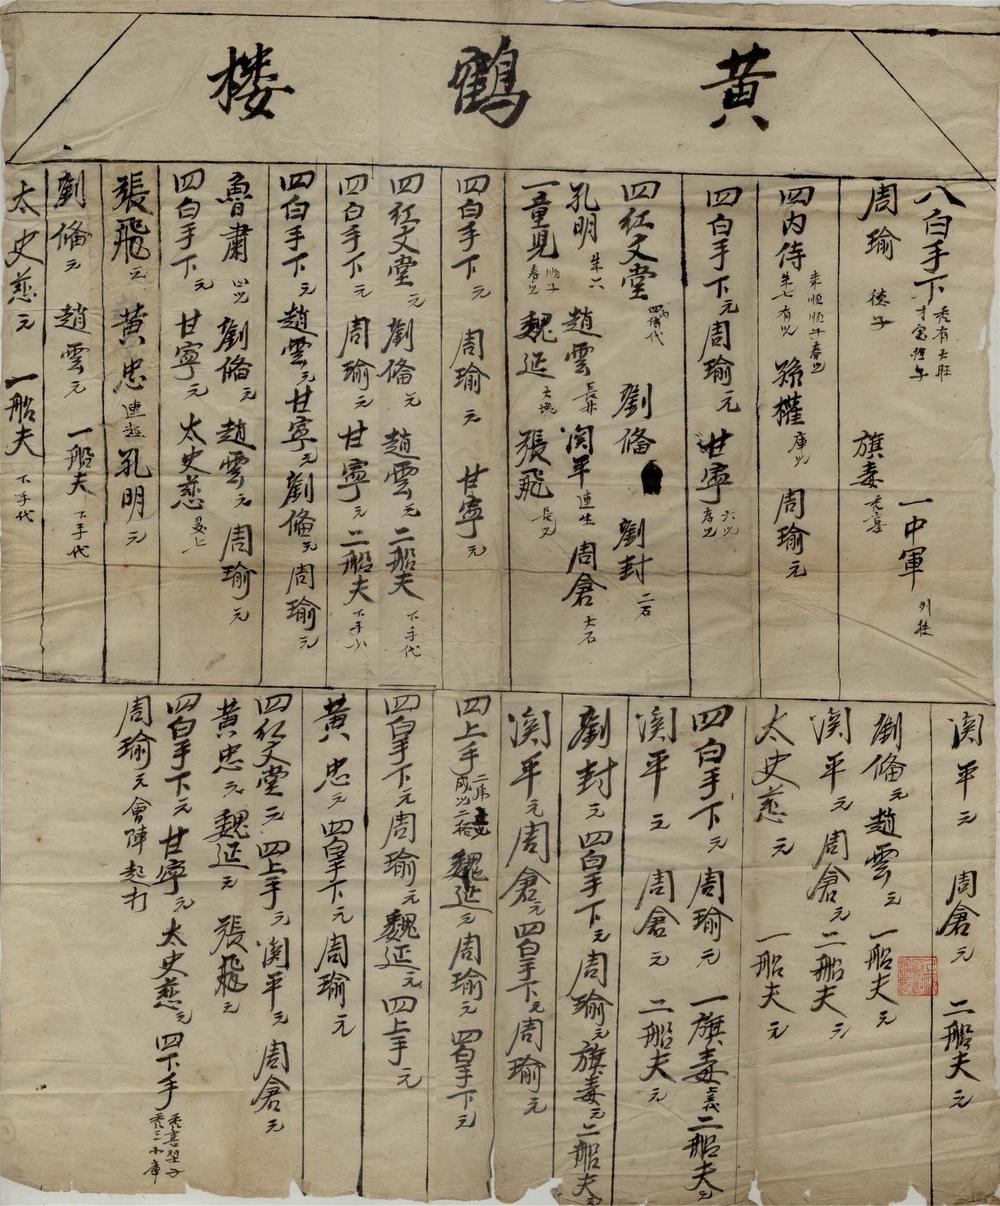 黃鶴楼
八白手下 秃有大旺 才宝狸午
一中軍
周瑜 徳子 旗毒
四内侍 朱七有以 来順順子春以
孫權 庫以 周瑜 元
四白手下 元 周瑜 元 甘寧 六以 库兒
四紅文堂 四内侍代 劉俻 劉封 二石
孔明 朱六 趙雲 関平 連生 周倉 大石
一童児 順子 春以 魏延 大塊 張飛 長以
四白手下 元 周瑜 元 甘寧 元
四紅文堂 元 劉俻 元 趙雲 元 二船夫 下手代
四白手下 元 周瑜 元 甘寧 元 二船夫 下手
四白手下 元 趙雲 元 甘寧 元 劉俻 元 周瑜 元
魯肅 四以 劉俻 元 趙雲 元 周瑜 元
四白手下 元 甘寧 元 太史慈
張飛 元 黃忠 連 孔明 元
劉俻 元 趙雲 元 一船夫 下手代
太史慈 元 一船夫 下手代
関平 元 周倉 元 二船夫 元
劉俻 元 趙雲 元 一船夫 元
関平 元 周倉 元 二船夫 元
太史慈 元 一船夫 元
四白手下 元 周瑜 元 一旗毒 二船夫 元
関平 元 周倉 元 二船夫 元
劉封 元 四白手下 元 周瑜 元 旗毒 元 二船夫 元
関平 元 周倉 元 四白手下 元 周瑜 元
四上手 成以 魏延 元 周瑜 元 四白手下 元
四白手下 元 周瑜 元 魏延 元 四上手 元
黃忠 元 四白手下 元 周瑜 元
四紅文堂 元 四上手 元 関平 元 周倉 元
黃忠 元 魏延 元 張飛 元
四白手下 元 甘寧 元 太史慈 元 四下手
周瑜 元 會陣起打